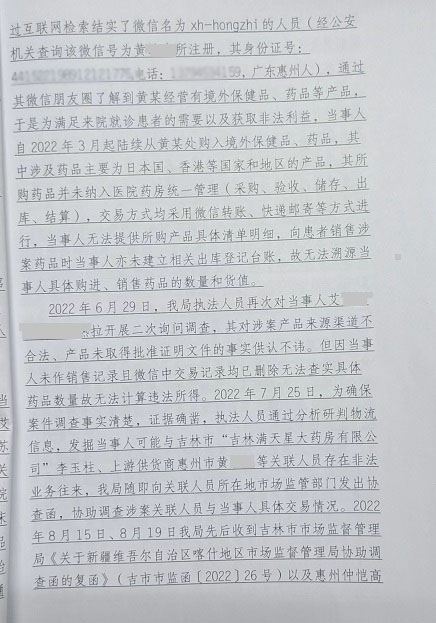 过互联网检索结实了微信名为 xh-hongzhi 的人员（经公安
机关查询该微信号为黄 所注册，其身份证号：
电话： ，广东惠州人），通过
其微信朋友圈了解到黄某经营有境外保健品、药品等产品，
于是为满足来院就诊患者的需要以及获取非法利益，当事人
自 2022 年 3 月起陆续从黄某处购入境外保健品、药品，其
中涉及药品主要为日本国、香港等国家和地区的产品，其所
购药品并未纳入医院药房统一管理（采购、验收、储存、出
库、结算），交易方式均采用微信转账、快递邮寄等方式进
行，当事人无法提供所购产品具体清单明细，向患者销售涉
案药品时当事人亦未建立相关出库登记台账，故无法溯源当
事人具体购进、销售药品的数量和货值。
2022 年 6 月 29 日，我局执法人员再次对当事人艾
拉开展二次询问调查，其对涉案产品来源渠道不
合法、产品未取得批准证明文件的事实供认不讳。但因当事
人未作销售记录且微信中交易记录均已删除无法查实具体
药品数量故无法计算违法所得。2022 年 7 月 25 日，为确保
案件调查事实清楚，证据确凿，执法人员通过分析研判物流
信息，发掘当事人可能与吉林市“吉林满天星大药房有限公
司”李玉柱、上游供货商惠州市黄 等关联人员存在非法
业务往来，我局随即向关联人员所在地市场监管部门发出协
查函，协助调查涉案关联人员与当事人具体交易情况。2022
年 8 月 15 日、8 月 19 日我局先后收到吉林市市场监督管理
局《关于新疆维吾尔自治区喀什地区市场监督管理局协助调
查函的复函》（吉市市监函〔2022〕26 号）以及惠州仲恺高